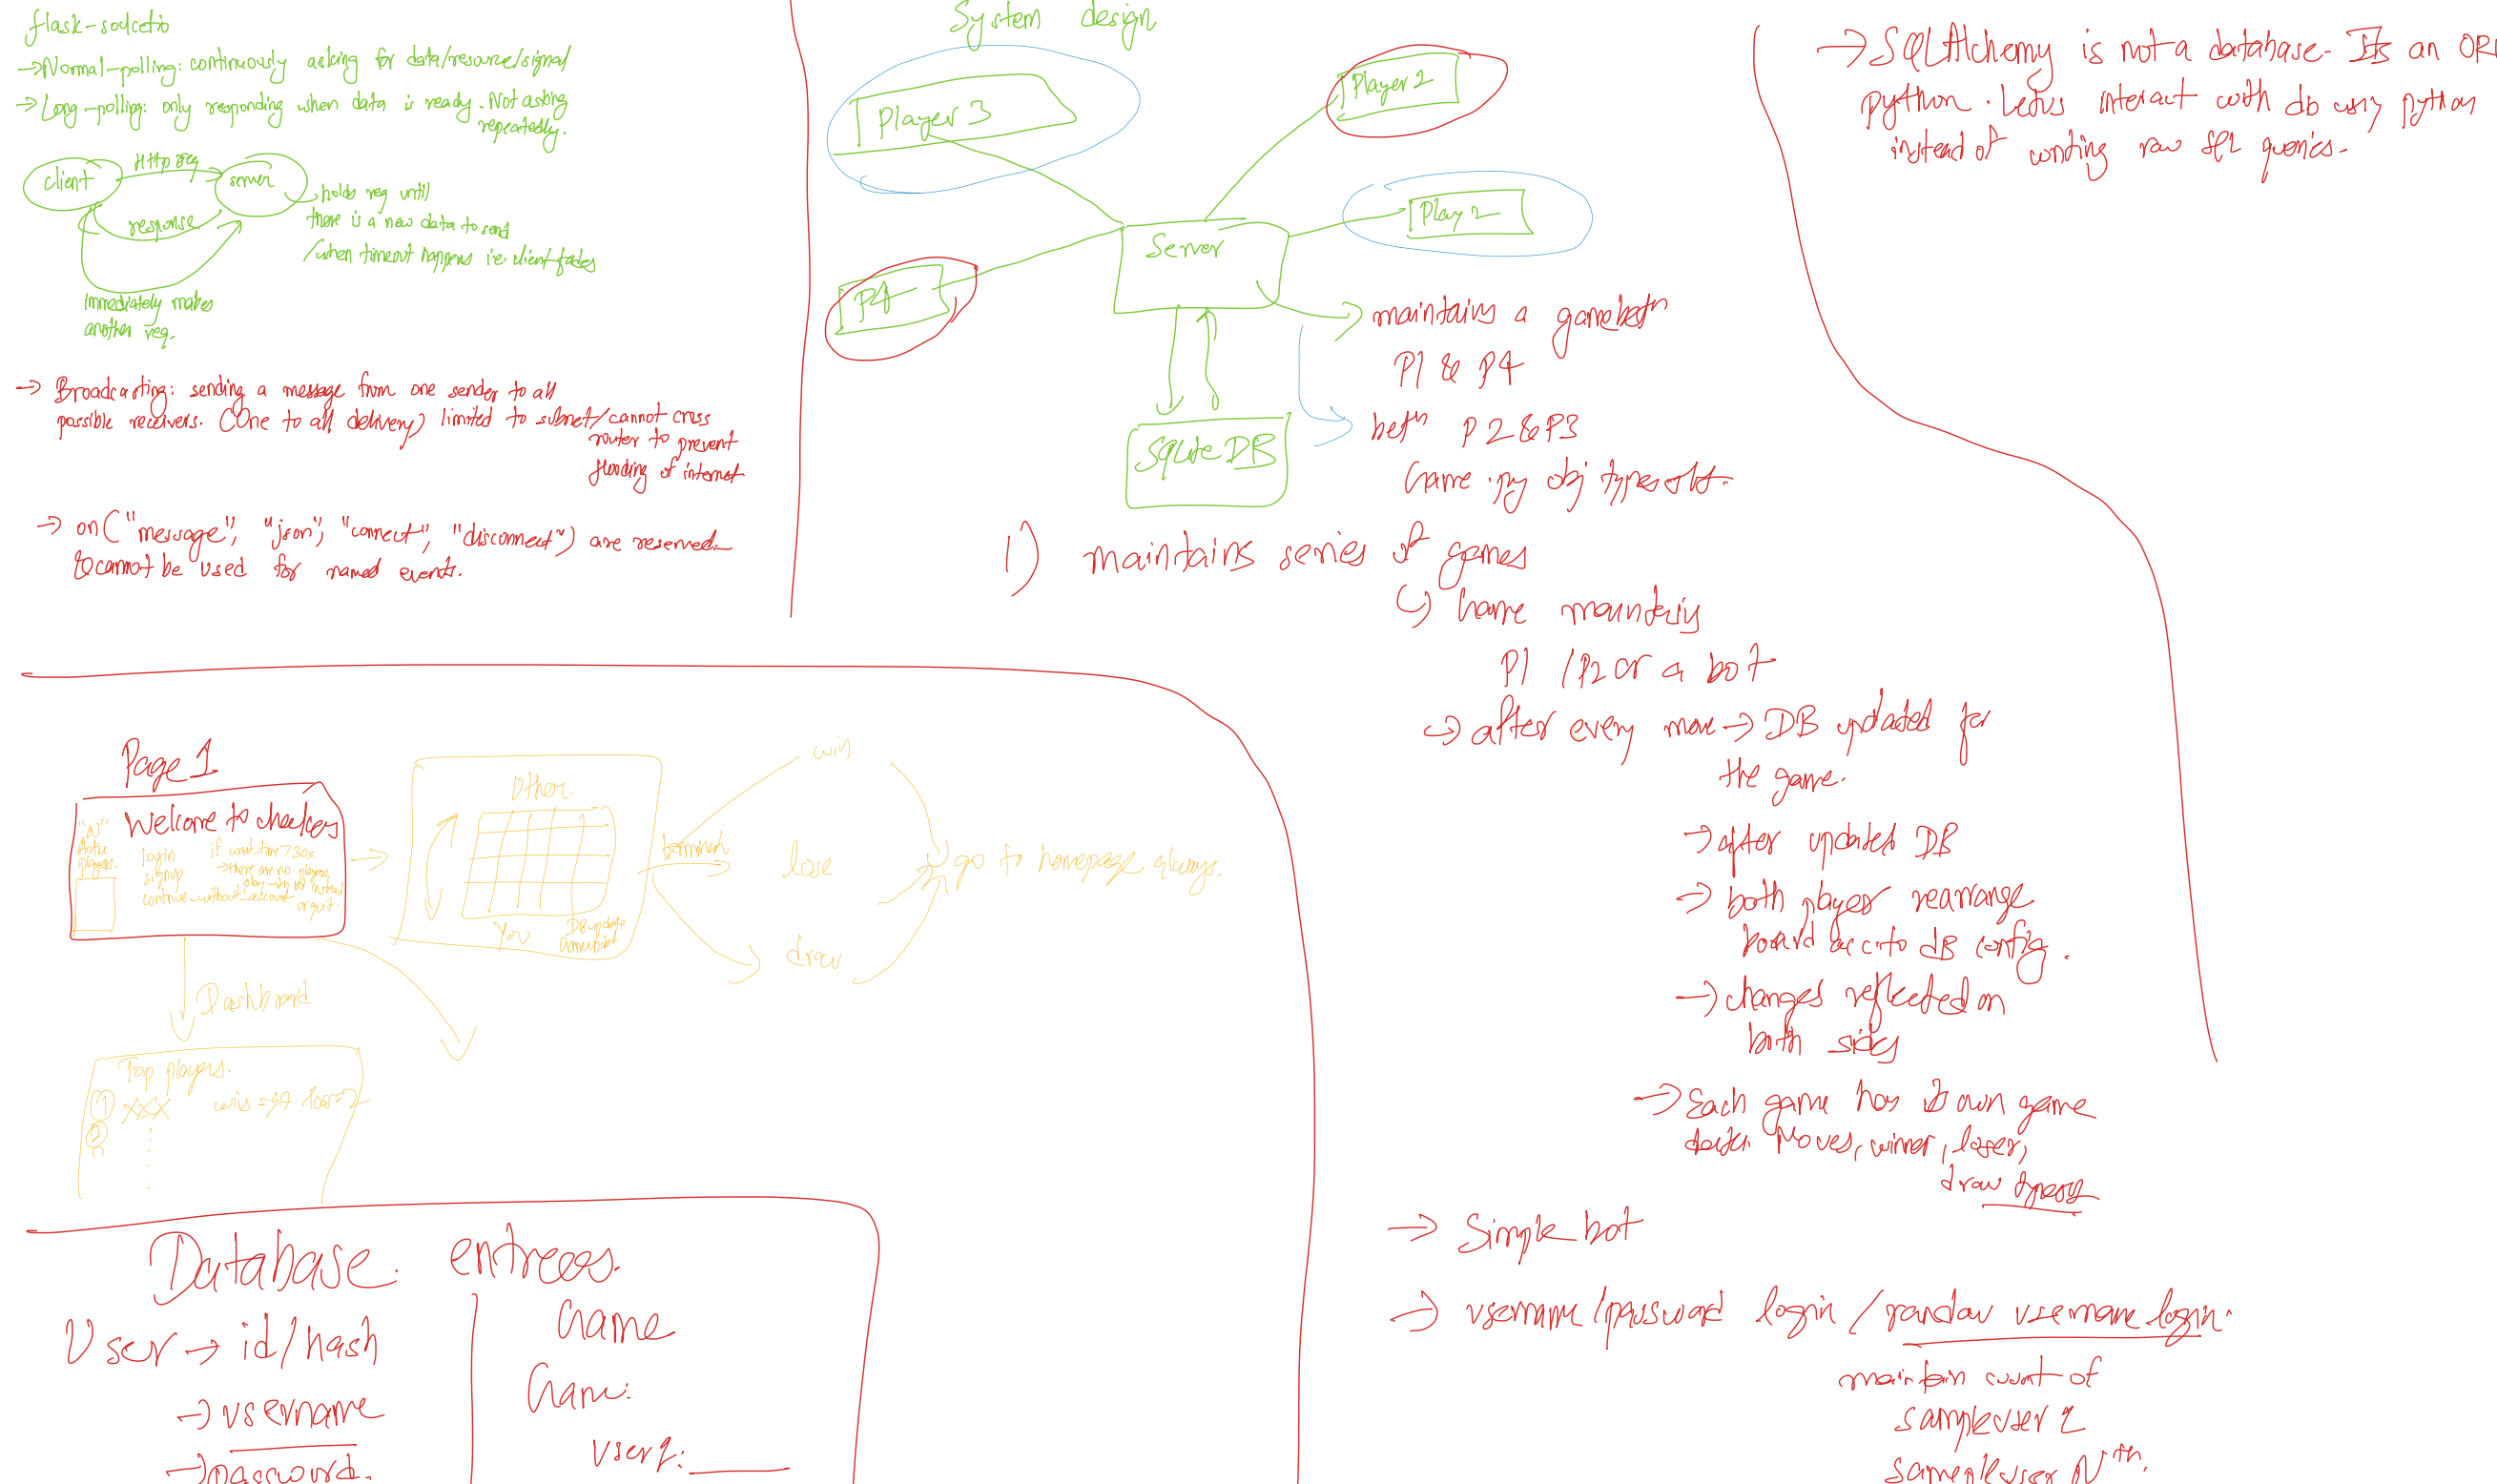 flask-socketio
→Normal-polling: continuously asking for data/resource/signal
→ Long-polling: only responding when data is ready. Not asking
repeatedly.
client
Http req
server
response
holds req until
there is a new data to send
/when timeout happens i.e. client
immediately makes
another req.
→ Broadcasting: sending a message from one sender to all
possible receivers. (One to all delivery) limited to subnet/cannot cross
router to prevent
flooding of internet
→ on("message", "json", "connect", "disconnect") are reserved
& cannot be used for named events.
System design
Player 3
Player 2
Play 2
P4
Server
Sqlite DB
maintains a game betn
P1 & P4
betn P2 & P3
Game.py obj
1) maintains series of games
Game
P1 /P2 or a bot
→ after every move → DB updated for
the game.
→ after updated DB
→ both player rearrange
board acc to dB config.
→ changes reflected on
both sides
→ Each game has its own game
Moves, winner, loser,
draw
→ Simple bot
→ username/password login / username login.
maintain count of
sampleuser 2
sampleuser Nth.
→ SQLAlchemy is not a database. Its an OR
python. Let us interact with db using python
instead of writing raw SQL queries.
Page 1
Welcome to checkers
"N"
Active
players.
login
signup
continue without account
if wait time > 30s
→ there are no players
play with bot instead
or quit.
Other.
You
DB update
win
lose
draw
go to homepage always.
Dashboard
Top players.
1 XXX wins = 57 loss = 2
2
Database entrees.
User → id/hash
→ username
→ password.
Game
Game:
user1: